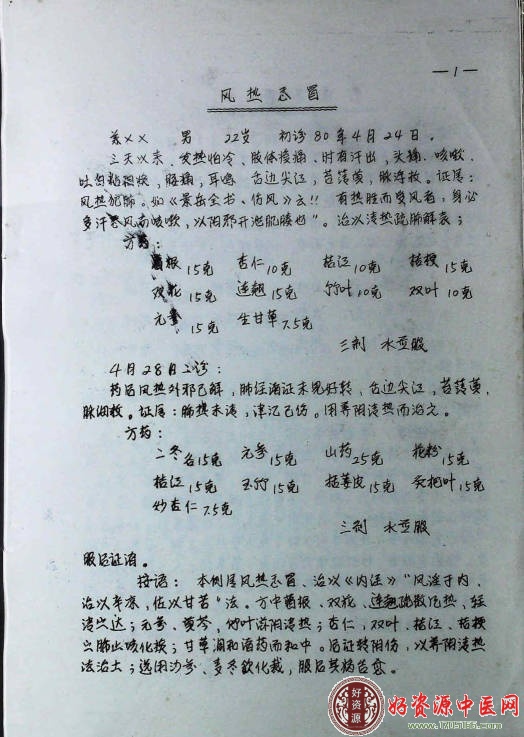 —1—
风热感冒
姜×× 男 22岁 初诊80年4月24日。
三天以来，发热怕冷、肢体酸痛、时有汗出，头痛、咳嗽、
吐白粘稠痰，腰痛，耳鸣，舌边尖红，苔薄黄，脉浮数。证属：
风热犯肺。如《景岳全书、伤风》云!! 有热胜而受风者，身必
多汗恶风而咳嗽，以阳邪开泄肌腠也"。治以清热疏肺解表；
方药：
根15克 杏仁10克 桔江10克 15克
双花15克 连翘15克 竹叶10克 双叶10克
元参15克 生甘草7.5克
三剂 水煎服
4月28日二诊：
药后风热外邪已解，肺经诸证未见好转，舌边尖江，苔薄黄，
脉细数。证属：肺热未清，津液已伤。用养阴清热而治之。
方药：
二冬各15克 元参15克 山药25克 花粉15克
桔江15克 玉竹15克 括蒌皮15克 炙杷叶15克
炒杏仁7.5克
三剂 水煎服
服后证消。
按语： 本例属风热感冒、治以《内经》"风淫于内、
治以辛凉，佐以甘苦"法。方中 根、双花、连翘疏散风热、轻
清 达；元参、 、竹叶滋阴清热；杏仁，双叶、桔江、
以肺止咳化痰；甘草调和诸药而和中。后证转阴伤，以养阴清热
法治士；选用沙参、麦冬饮化裁，服后其病告愈。
好资源
好资源中医网